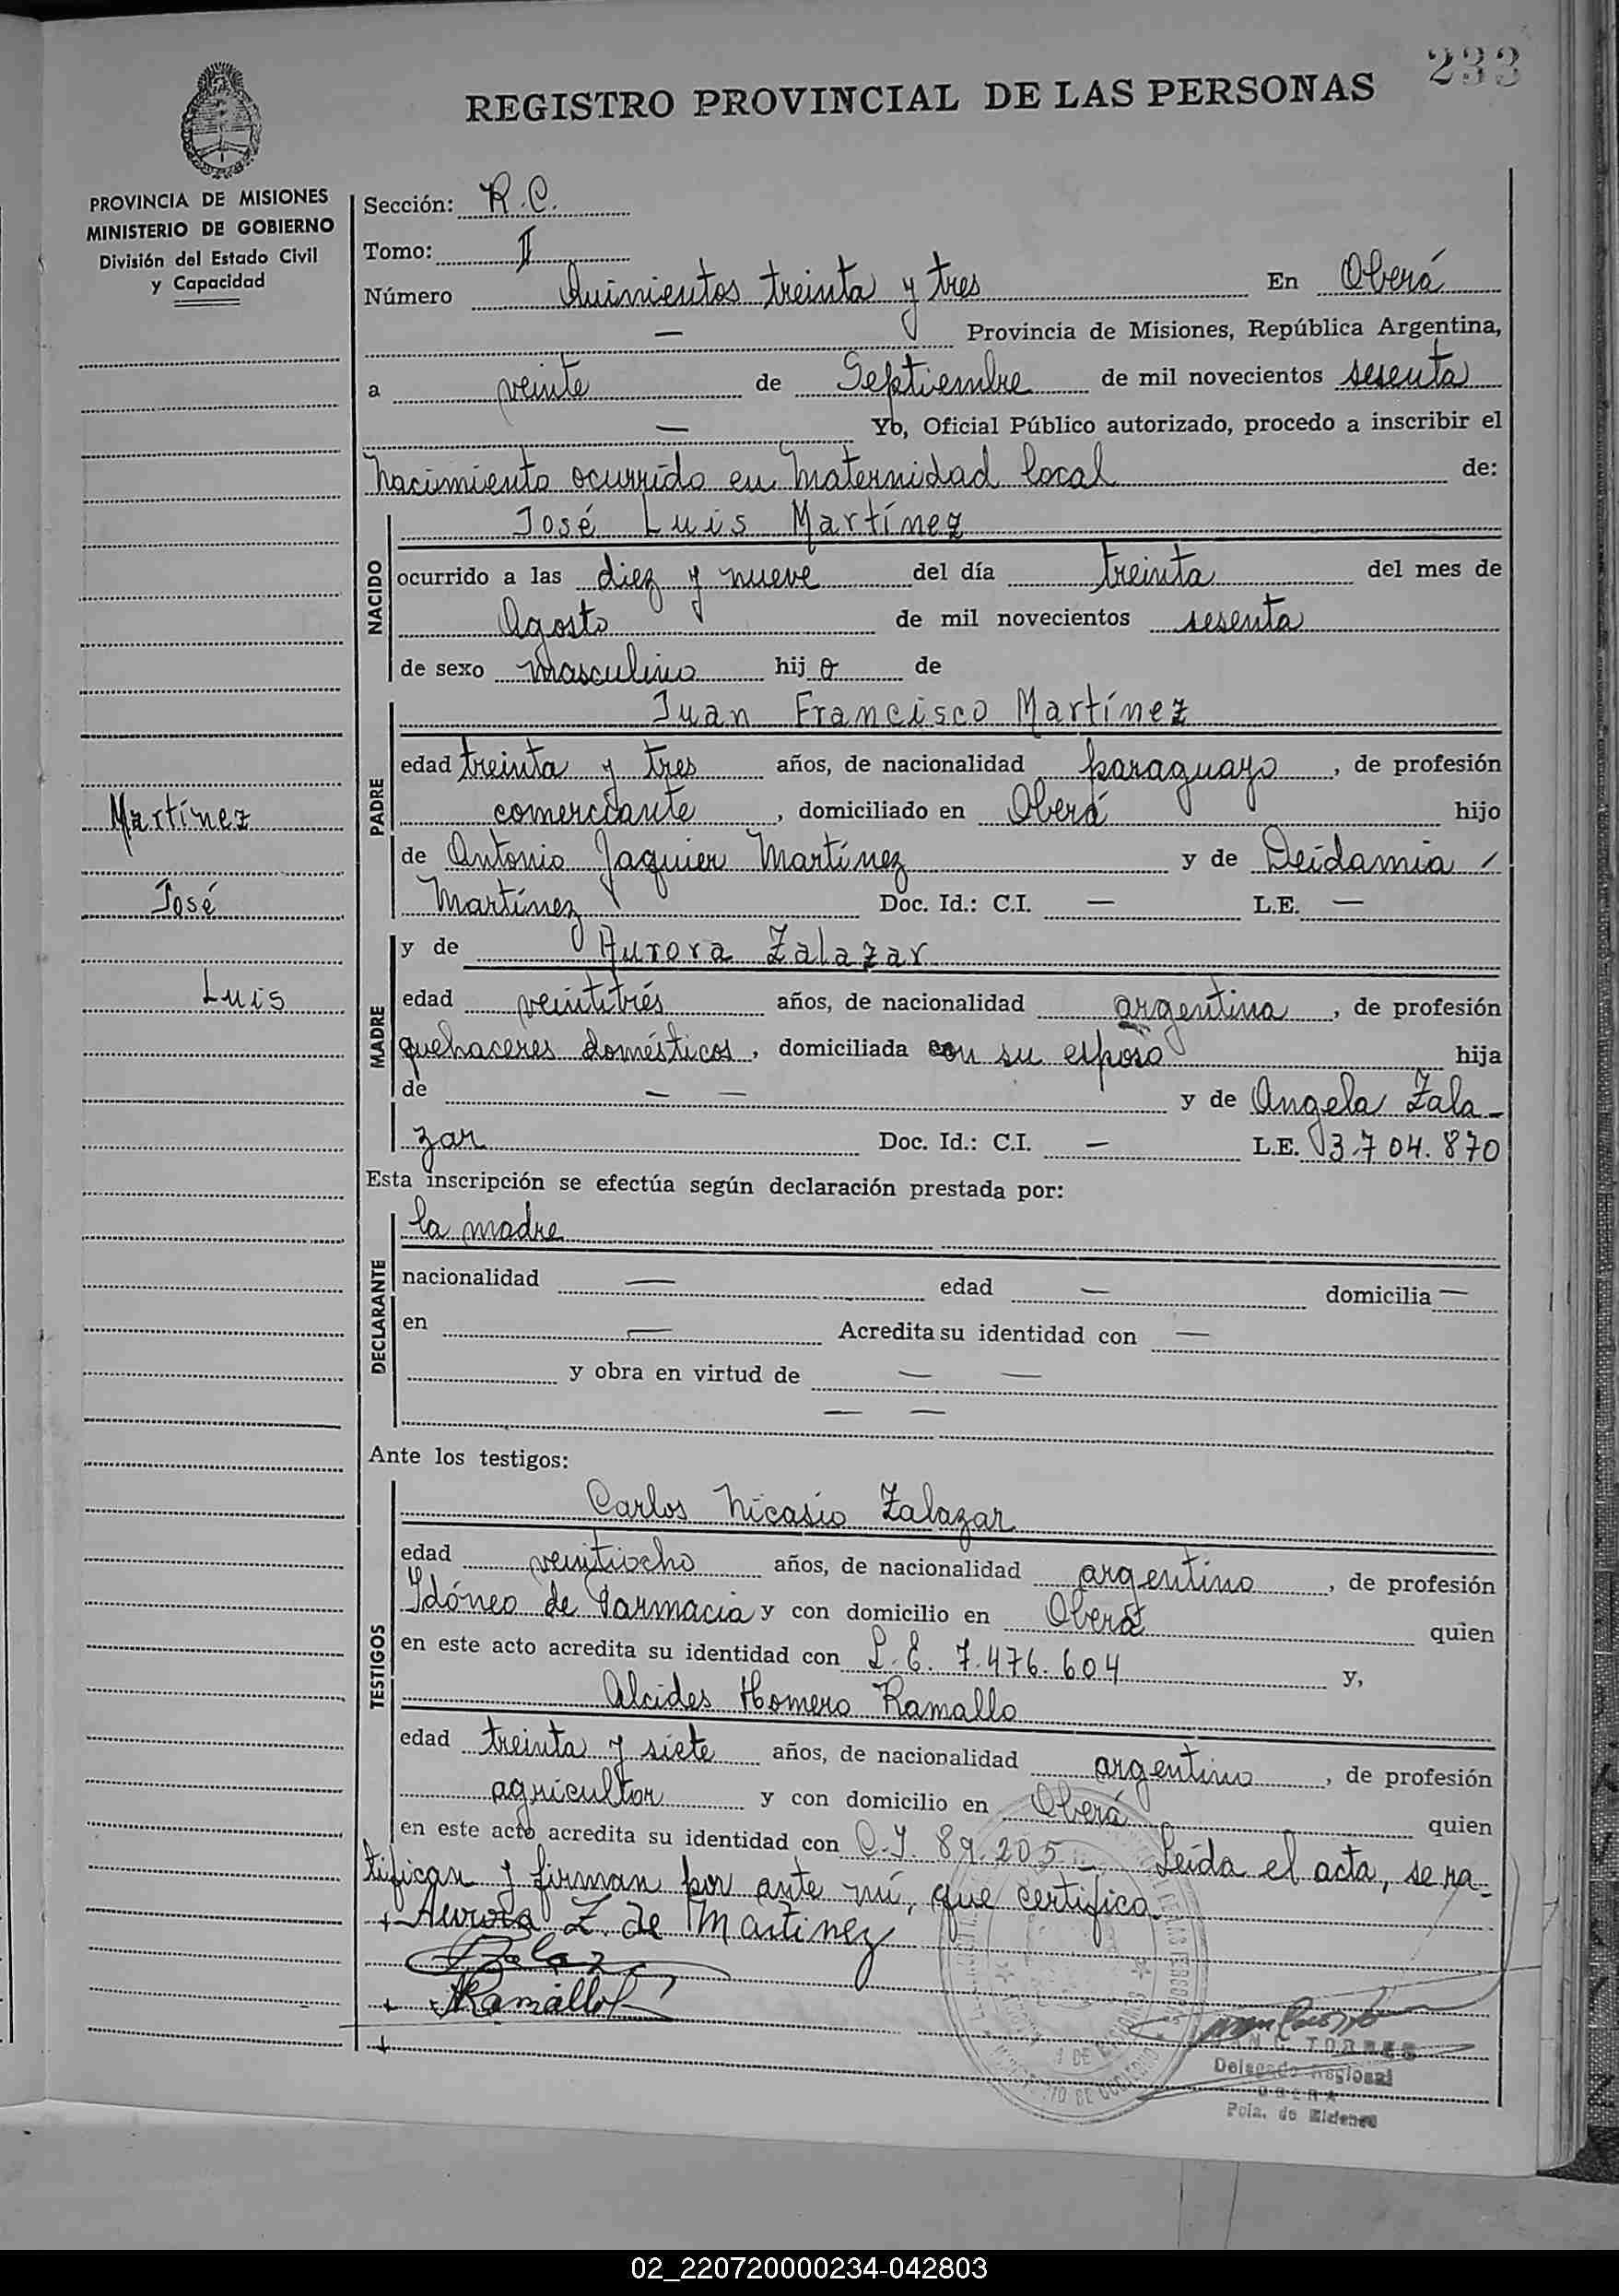 233
REGISTRO PROVINCIAL DE LAS PERSONAS
PROVINCIA DE MISIONES
MINISTERIO DE GOBIERNO
División del Estado Civil
y Capacidad
Sección: R.C.
Tomo: II
Número Quinientos treinta y tres En Oberá
— Provincia de Misiones, República Argentina,
a veinte de Septiembre de mil novecientos sesenta
— Yo, Oficial Público autorizado, procedo a inscribir el
nacimiento ocurrido en Maternidad local de:
NACIDO
José Luis Martínez
ocurrido a las diez y nueve del día treinta del mes de
Agosto de mil novecientos sesenta
de sexo masculino hij o de
PADRE
Juan Francisco Martínez
edad treinta y tres años, de nacionalidad paraguayo, de profesión
comerciante, domiciliado en Oberá hijo
de Antonio Jaquier Martínez y de Deidamia
Martínez Doc. Id.: C.I. — L.E. —
Martínez
José
Luis
MADRE
y de Aurora Zalazar
edad veintitrés años, de nacionalidad argentina, de profesión
quehaceres domésticos, domiciliada con su esposo hija
de — — y de Angela Zala-
zar Doc. Id.: C.I. — L.E. 3.704.870
Esta inscripción se efectúa según declaración prestada por:
DECLARANTE
la madre
nacionalidad — edad — domicilia —
en — Acredita su identidad con —
y obra en virtud de — —
— —
Ante los testigos:
TESTIGOS
Carlos Nicasio Zalazar
edad veintiocho años, de nacionalidad argentino, de profesión
Idóneo de Farmacia y con domicilio en Oberá quien
en este acto acredita su identidad con L.E. 7.476.604 y,
Alcides Homero Ramallo
edad treinta y siete años, de nacionalidad argentino, de profesión
agricultor y con domicilio en Oberá quien
en este acto acredita su identidad con C.I. 89.205 — Leída el acta, se ra-
tifican y firman por ante mí, que certifico.
Aurora Z. de Martinez
Ramallo
TORRES
Delegado Regional
OBERA
Pcia. de Misiones
02_220720000234-042803